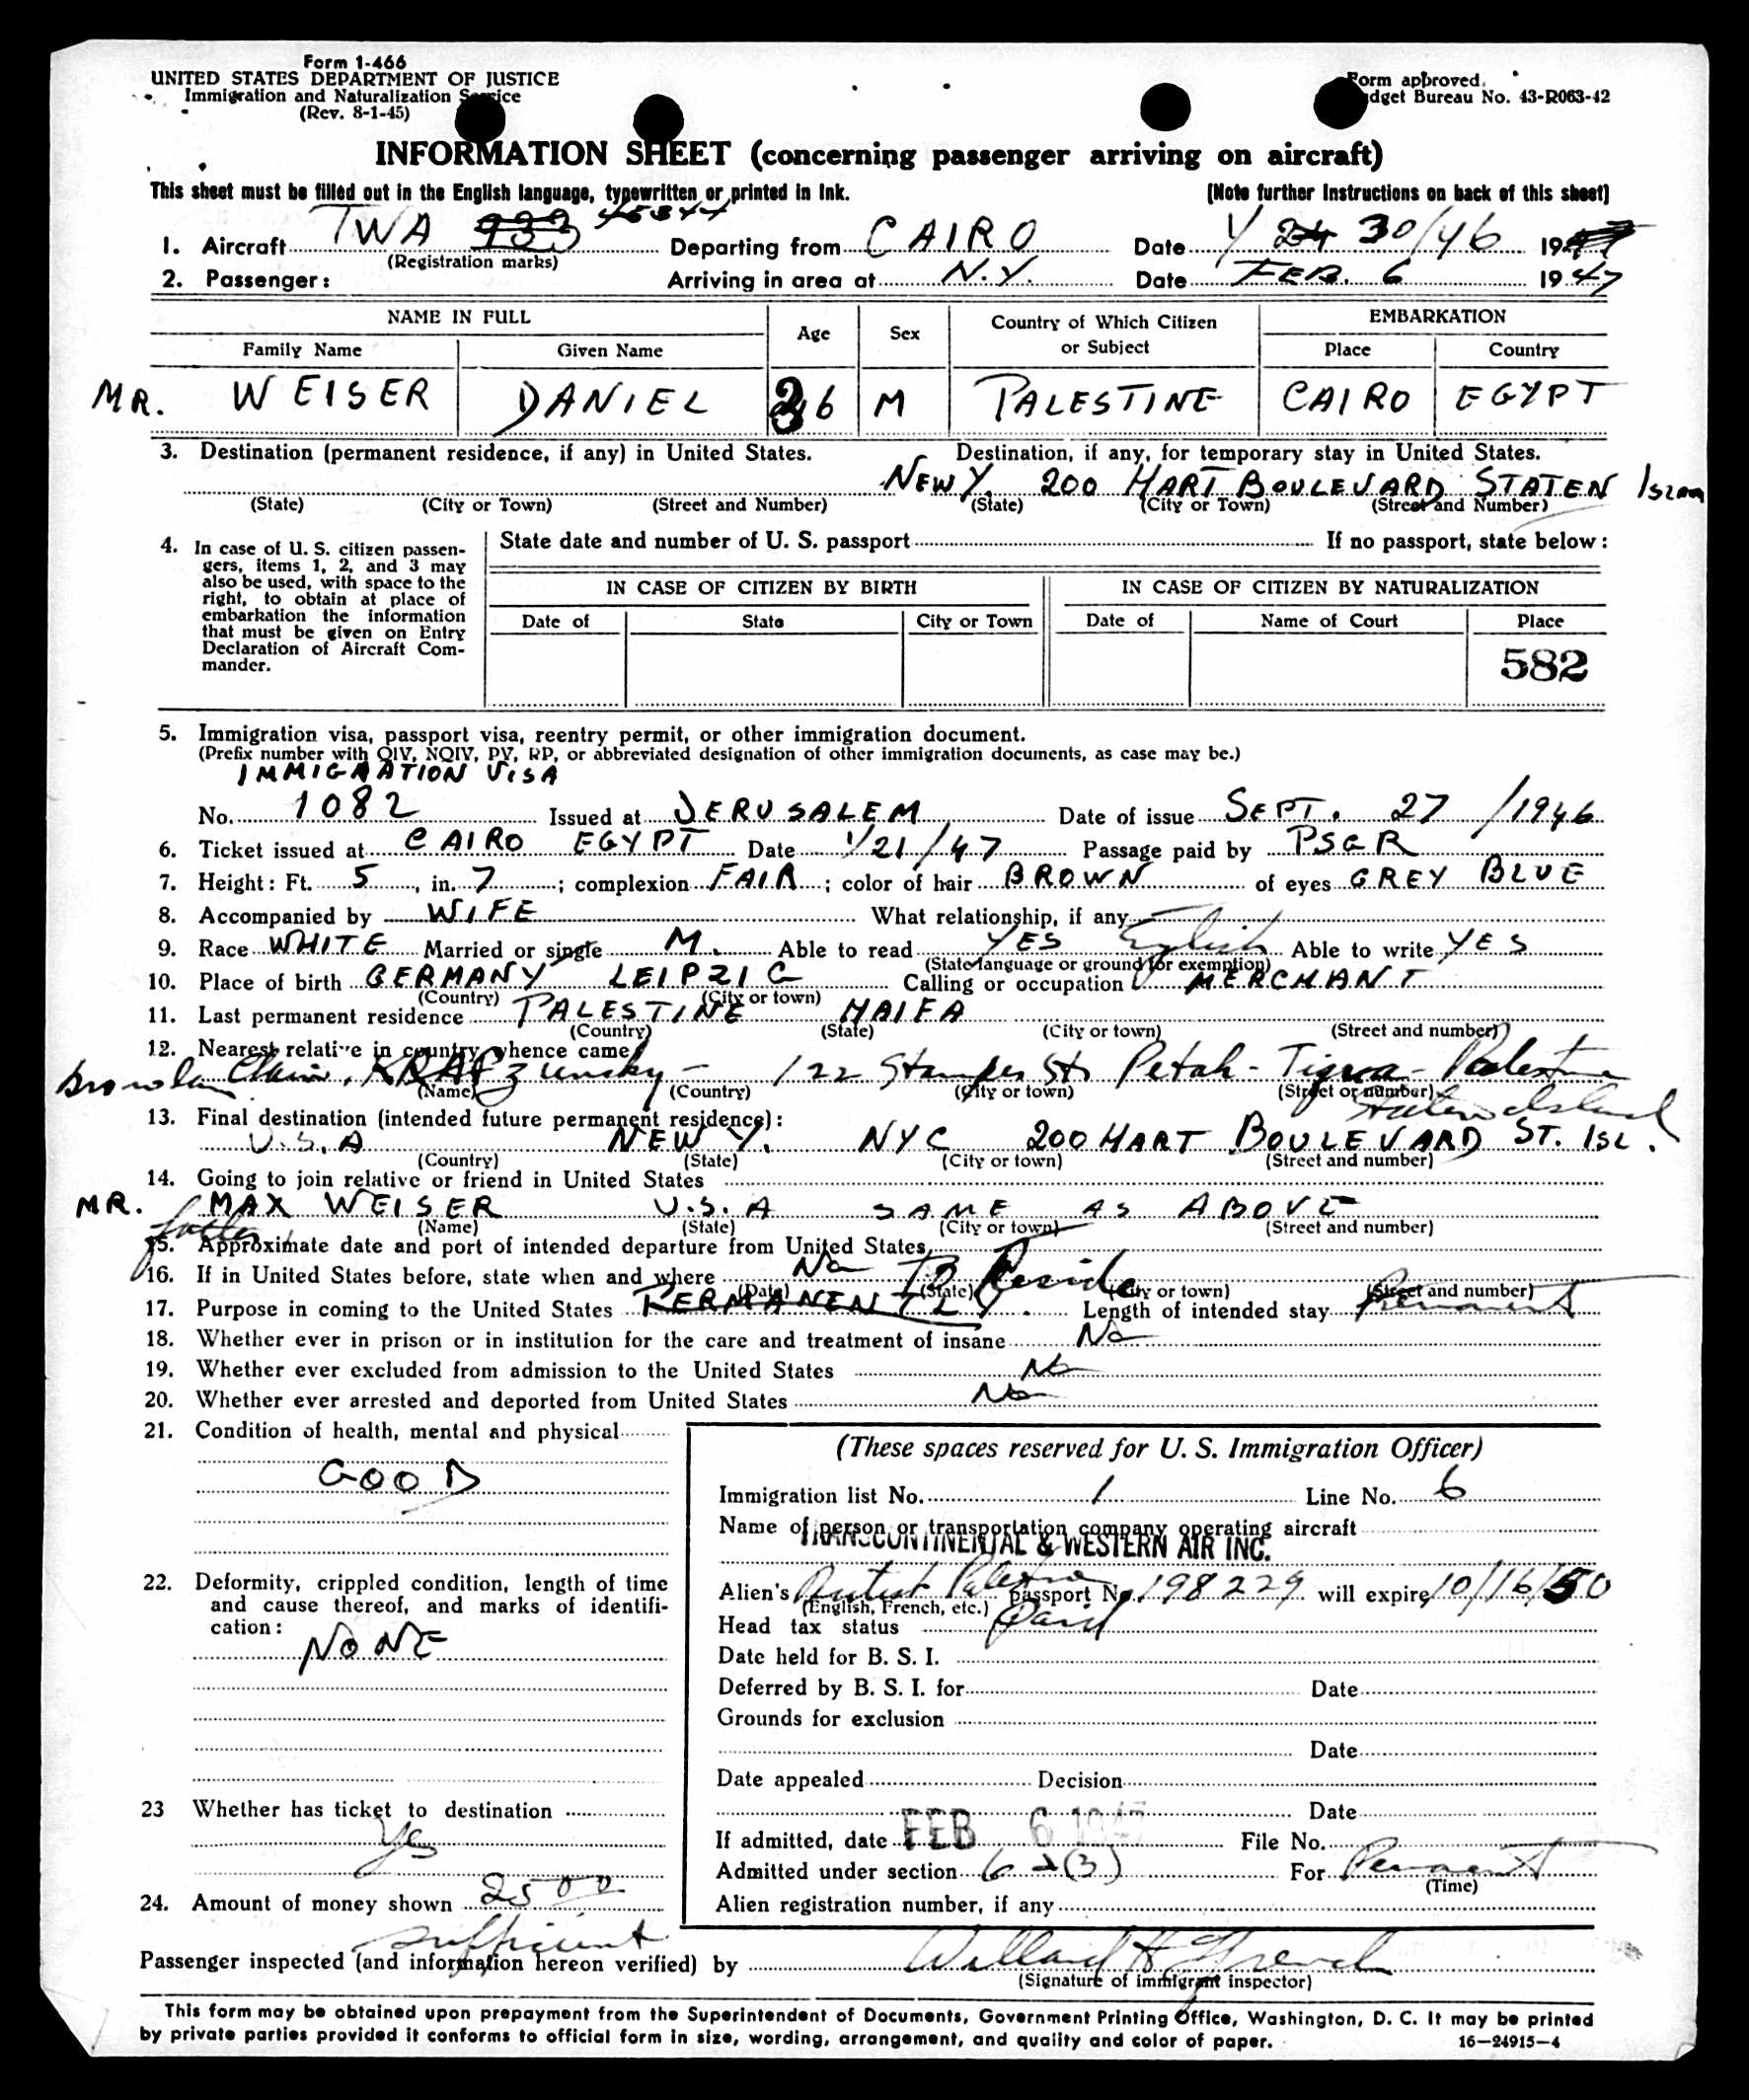 Form 1-466
UNITED STATES DEPARTMENT OF JUSTICE
Immigration and Naturalization Service
(Rev. 8-1-45)
Form approved.
Budget Bureau No. 43-R063-42
INFORMATION SHEET (concerning passenger arriving on aircraft)
This sheet must be filled out in the English language, typewritten or printed in ink.
[Note further instructions on back of this sheet]
1. Aircraft TWA 933 45344 Departing from CAIRO Date 1/ 24 30/46 19
(Registration marks)
2. Passenger: Arriving in area at N.Y. Date FEB. 6 1947
NAME IN FULL Age Sex Country of Which Citizen or Subject EMBARKATION
Family Name Given Name Place Country
MR. WEISER DANIEL 36 M PALESTINE CAIRO EGYPT
3. Destination (permanent residence, if any) in United States. Destination, if any, for temporary stay in United States.
NEW Y. 200 HART BOULEVARD STATEN
(State) (City or Town) (Street and Number) (State) (City or Town) (Street and Number)
4. In case of U. S. citizen passen-
gers, items 1, 2, and 3 may
also be used, with space to the
right, to obtain at place of
embarkation the information
that must be given on Entry
Declaration of Aircraft Com-
mander.
State date and number of U. S. passport If no passport, state below:
IN CASE OF CITIZEN BY BIRTH IN CASE OF CITIZEN BY NATURALIZATION
Date of State City or Town Date of Name of Court Place
582
5. Immigration visa, passport visa, reentry permit, or other immigration document.
(Prefix number with QIV, NQIV, PV, RP, or abbreviated designation of other immigration documents, as case may be.)
IMMIGRATION VISA
No. 1082 Issued at JERUSALEM Date of issue SEPT. 27 /1946
6. Ticket issued at CAIRO EGYPT Date 1/21/47 Passage paid by PSGR
7. Height: Ft. 5, in. 7; complexion FAIR; color of hair BROWN of eyes GREY BLUE
8. Accompanied by WIFE What relationship, if any
9. Race WHITE Married or single M. Able to read YES English Able to write YES
(State language or ground for exemption)
10. Place of birth GERMANY LEIPZIG Calling or occupation MERCHANT
(Country) (City or town)
11. Last permanent residence PALESTINE HAIFA
(Country) (State) (City or town) (Street and number)
12. Nearest relative in country whence came
122 Stamper Str Petah-Tiqva-Palestine
(Name) (Country) (City or town) (Street or number)
Staten Island
13. Final destination (intended future permanent residence):
U.S.A NEW Y. NYC 200 HART BOULEVARD ST. ISL.
(Country) (State) (City or town) (Street and number)
14. Going to join relative or friend in United States
MR. MAX WEISER U.S.A SAME AS ABOVE
(Name) (State) (City or town) (Street and number)
father
15. Approximate date and port of intended departure from United States
16. If in United States before, state when and where No To Reside
(Date) (State) (City or town) (Street and number)
17. Purpose in coming to the United States PERMANENTLY Length of intended stay Permanent
18. Whether ever in prison or in institution for the care and treatment of insane No
19. Whether ever excluded from admission to the United States No
20. Whether ever arrested and deported from United States No
21. Condition of health, mental and physical
GOOD
22. Deformity, crippled condition, length of time
and cause thereof, and marks of identifi-
cation:
NONE
23 Whether has ticket to destination
Yes
24. Amount of money shown 2500
sufficient
(These spaces reserved for U. S. Immigration Officer)
Immigration list No. 1 Line No. 6
Name of person or transportation company operating aircraft
TRANSCONTINENTAL & WESTERN AIR INC.
Alien's British Palestine passport No. 198229 will expire 10/16/50
(English, French, etc.)
Head tax status Paid
Date held for B. S. I.
Deferred by B. S. I. for Date
Grounds for exclusion
Date
Date appealed Decision
Date
If admitted, date FEB 6 1947 File No.
Admitted under section 6 (3) For Permanent
(Time)
Alien registration number, if any
Passenger inspected (and information hereon verified) by Willard H French
(Signature of immigrant inspector)
This form may be obtained upon prepayment from the Superintendent of Documents, Government Printing Office, Washington, D. C. It may be printed
by private parties provided it conforms to official form in size, wording, arrangement, and quality and color of paper. 16—24915-4